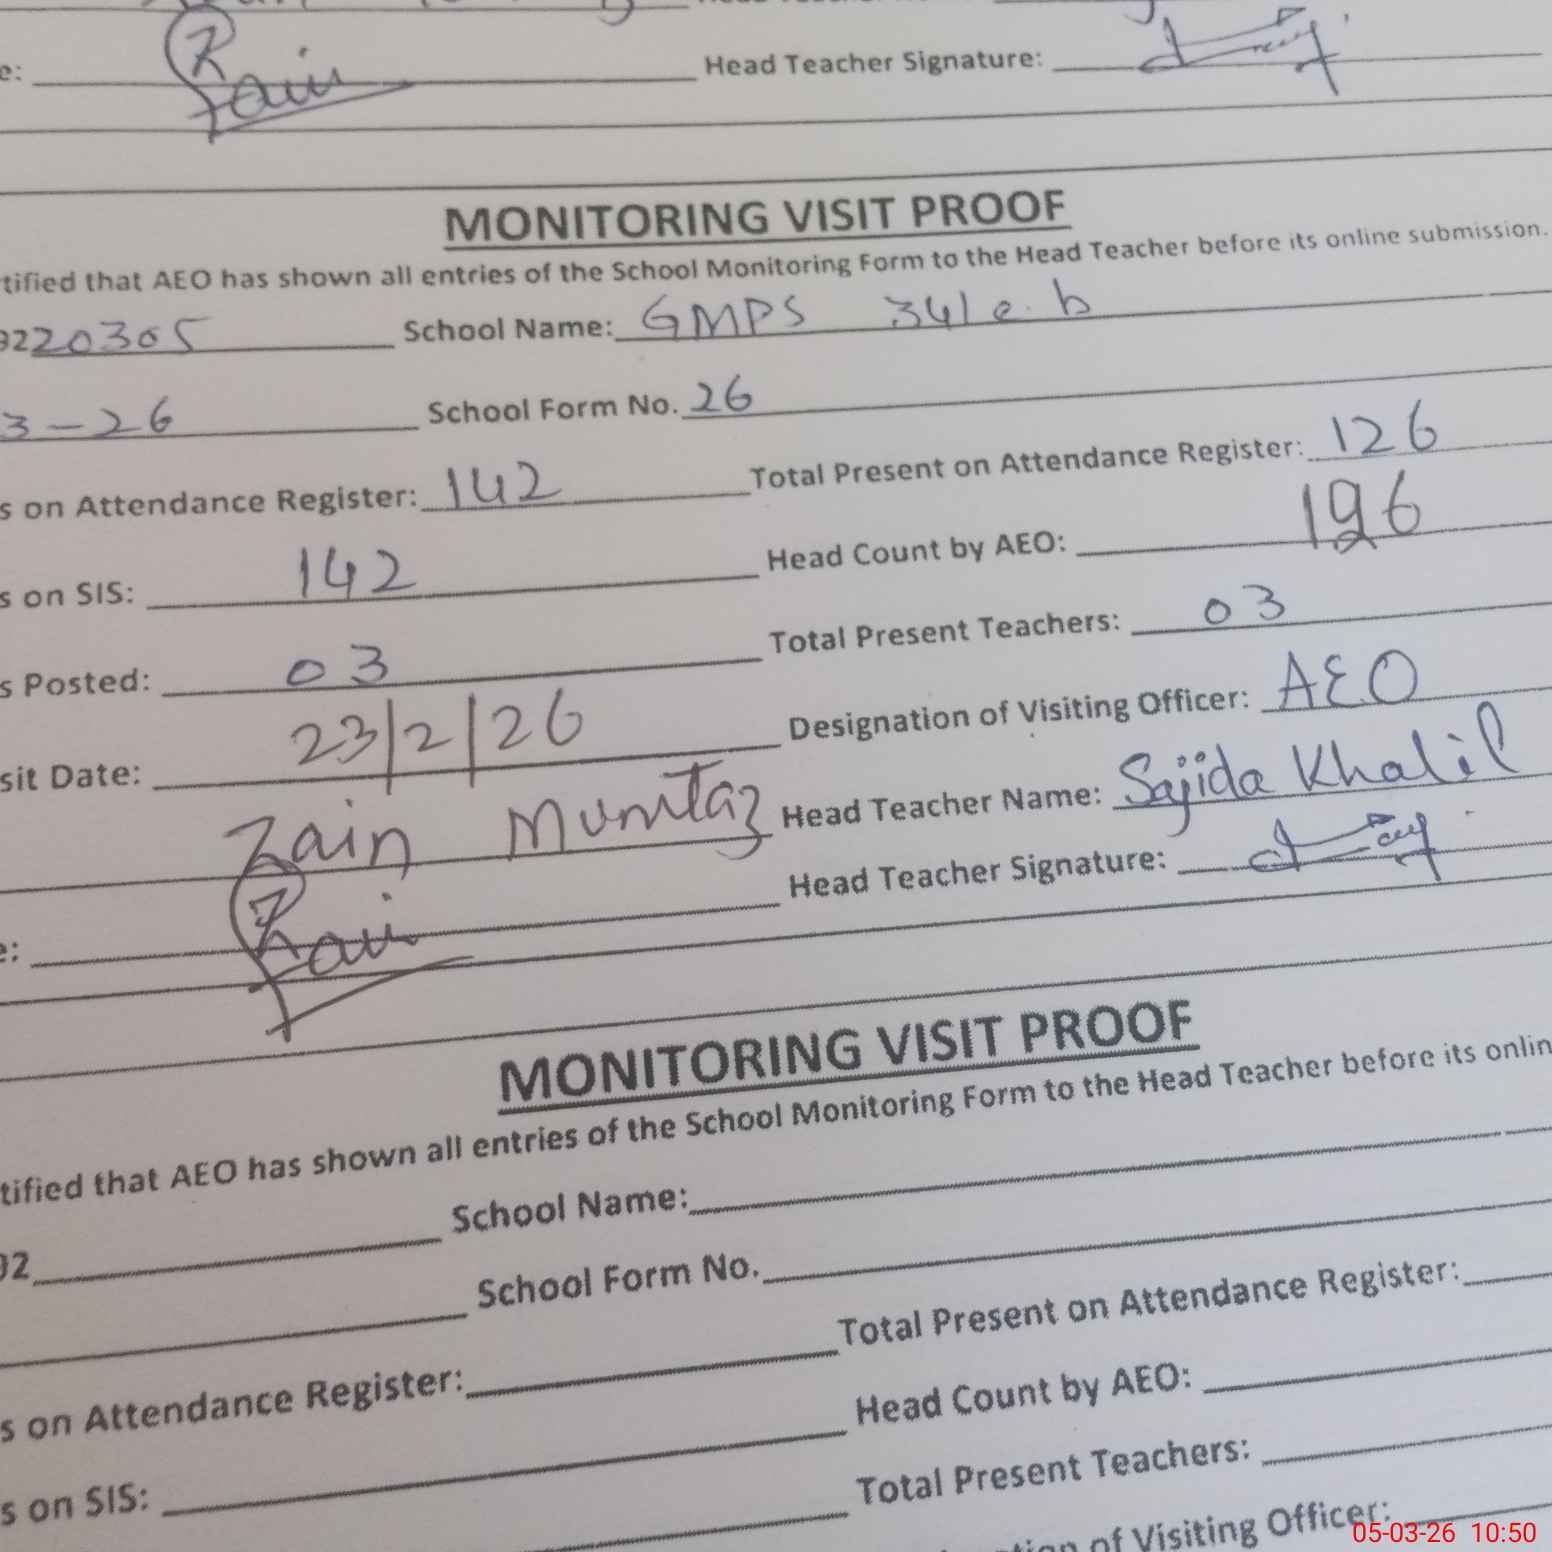 e: Zain Head Teacher Signature:
MONITORING VISIT PROOF
tified that AEO has shown all entries of the School Monitoring Form to the Head Teacher before its online submission.
9220305 School Name: GMPS 341 e.b
3-26 School Form No. 26
s on Attendance Register: 142 Total Present on Attendance Register: 126
s on SIS: 142 Head Count by AEO: 126
s Posted: 03 Total Present Teachers: 03
sit Date: 23/2/26 Designation of Visiting Officer: AEO
Zain Mumtaz Head Teacher Name: Sajida Khalil
e: Zain Head Teacher Signature:
MONITORING VISIT PROOF
tified that AEO has shown all entries of the School Monitoring Form to the Head Teacher before its onlin
92 School Name:
School Form No.
s on Attendance Register: Total Present on Attendance Register:
s on SIS: Head Count by AEO:
Total Present Teachers:
of Visiting Officer:
05-03-26 10:50